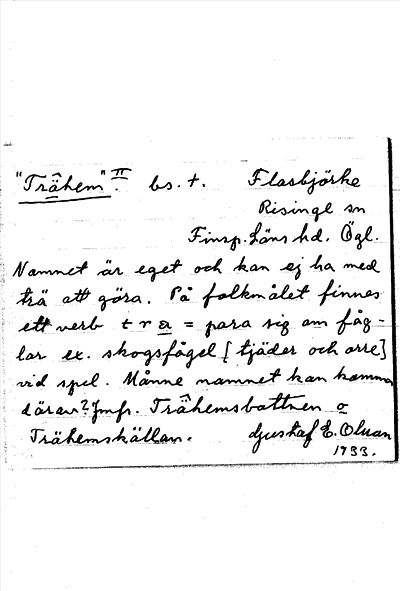 "Trähem" II. bs. t. Flasbjörke
Risinge sn
Finsp. Läns hd. Ögl.
Namnet är eget och kan ej ha med
trä att göra. På folkmålet finnes
ett verb tra = para sig om fåg-
lar ex. skogsfågel [tjäder och orre]
vid spel. Månne namnet kan komma
därav? Jmfr. Trähemsbottnen o
Trähemskällan. Gustaf E. Olsson
1933.